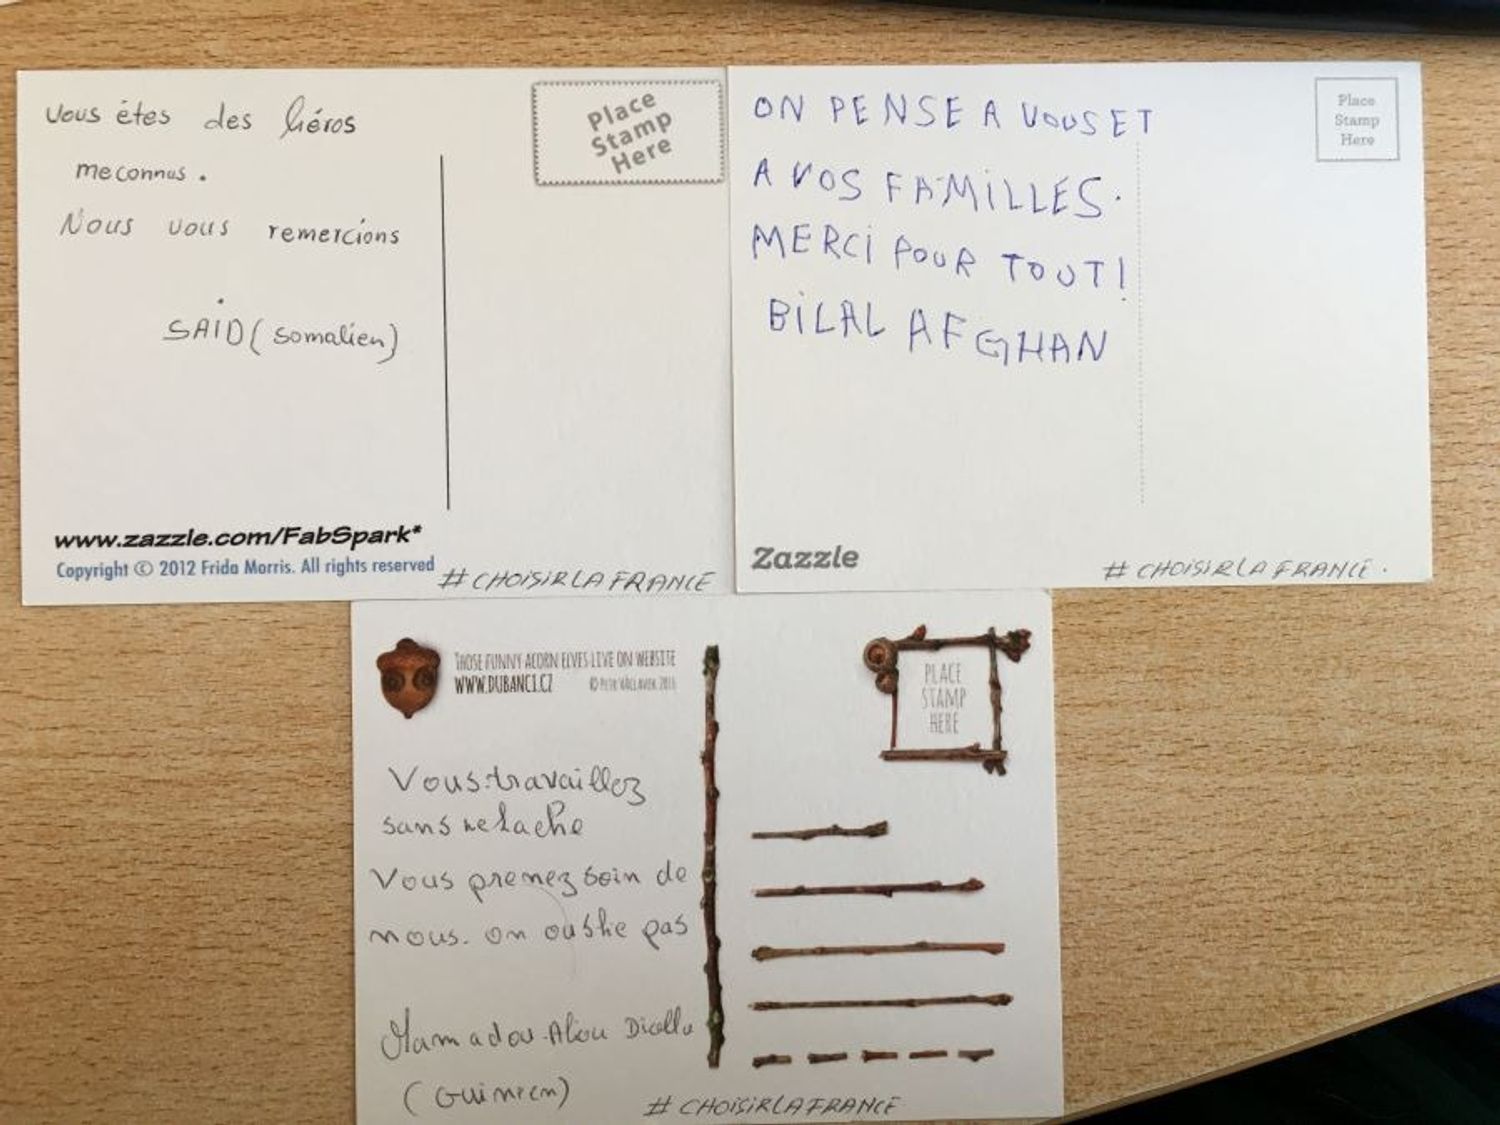 Vous êtes des héros
meconnus.
Nous vous remercions
SAID (somalien)
Place
Stamp
Here
www.zazzle.com/FabSpark*
Copyright © 2012 Frida Morris. All rights reserved
#CHOISIRLAFRANCE
ON PENSE A VOUS ET
A VOS FAMILLES.
MERCI POUR TOUT!
BILAL AFGHAN
Place
Stamp
Here
Zazzle
#CHOISIRLAFRANCE.
THOSE FUNNY ACORN ELVES LIVE ON WEBSITE
WWW.DUBANCI.CZ
PLACE
STAMP
HERE
Vous travaillez
sans relache
Vous prenez soin de
nous. on oublie pas
Mamadou Aliou Diallo
(Guineen)
#CHOISIRLAFRANCE